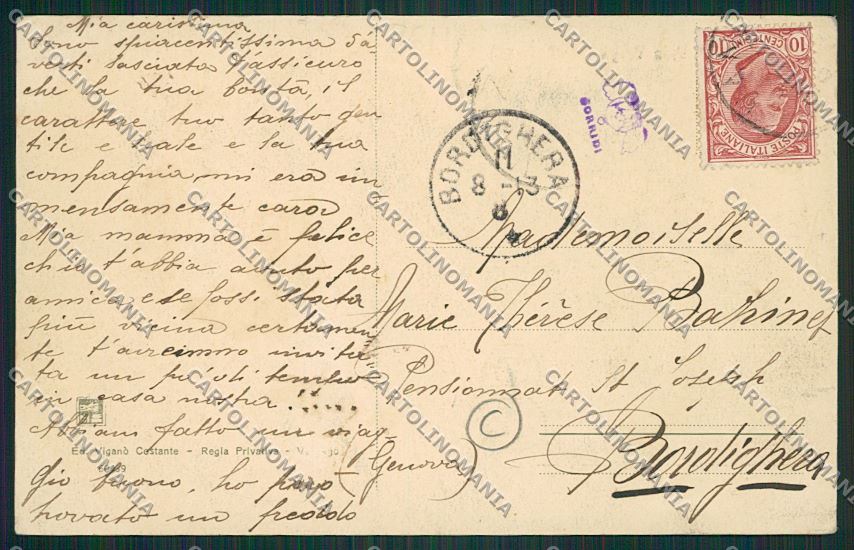 Mia carissima
Sono spiacentissima da
verti lasciata t'assicuro
che la tua bontà, il
carattere tuo tanto gen
tile e leale e la tua
compagnia mi era im
mensamente cara
Mia mamma è felice
ch'io t'abbia avuto per
amica e se fossi stata
più vicina certamen
te t'avremmo invita
ta un po' di tempo
in casa nostra.
Abbiam fatto un viag
gio buono, ho però
trovato un freddo
Ed. Viganò Costante - Regia Privativa - V
BORDIGHERA
11
8 - 13
8
SORRIDI
10
CENTESIMI
POSTE ITALIANE
Mademoiselle
Marie Thérèse
Pensionnat St Joseph
(Genova)
Bordighera
©
CARTOLINOMANIA